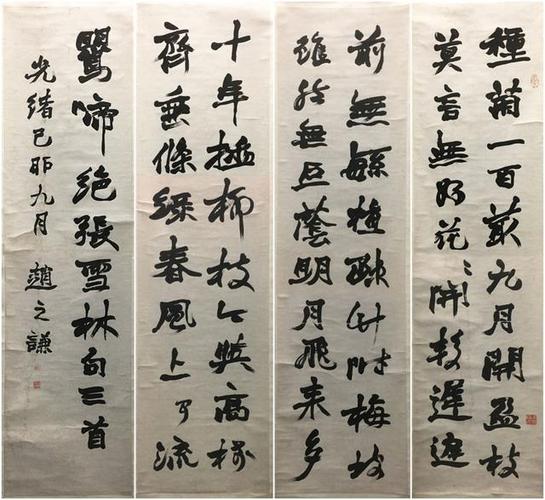 種菊一百九月開盈枝
莫言無好花〻開較遲遲
前無植疏竹附梅坡
雖然無巨蔭明月飛來多
十年插柳枝今與高樓
齊垂條綠春風上有流
鶯啼絕張雪林句三首
光緒己卯九月 趙之謙